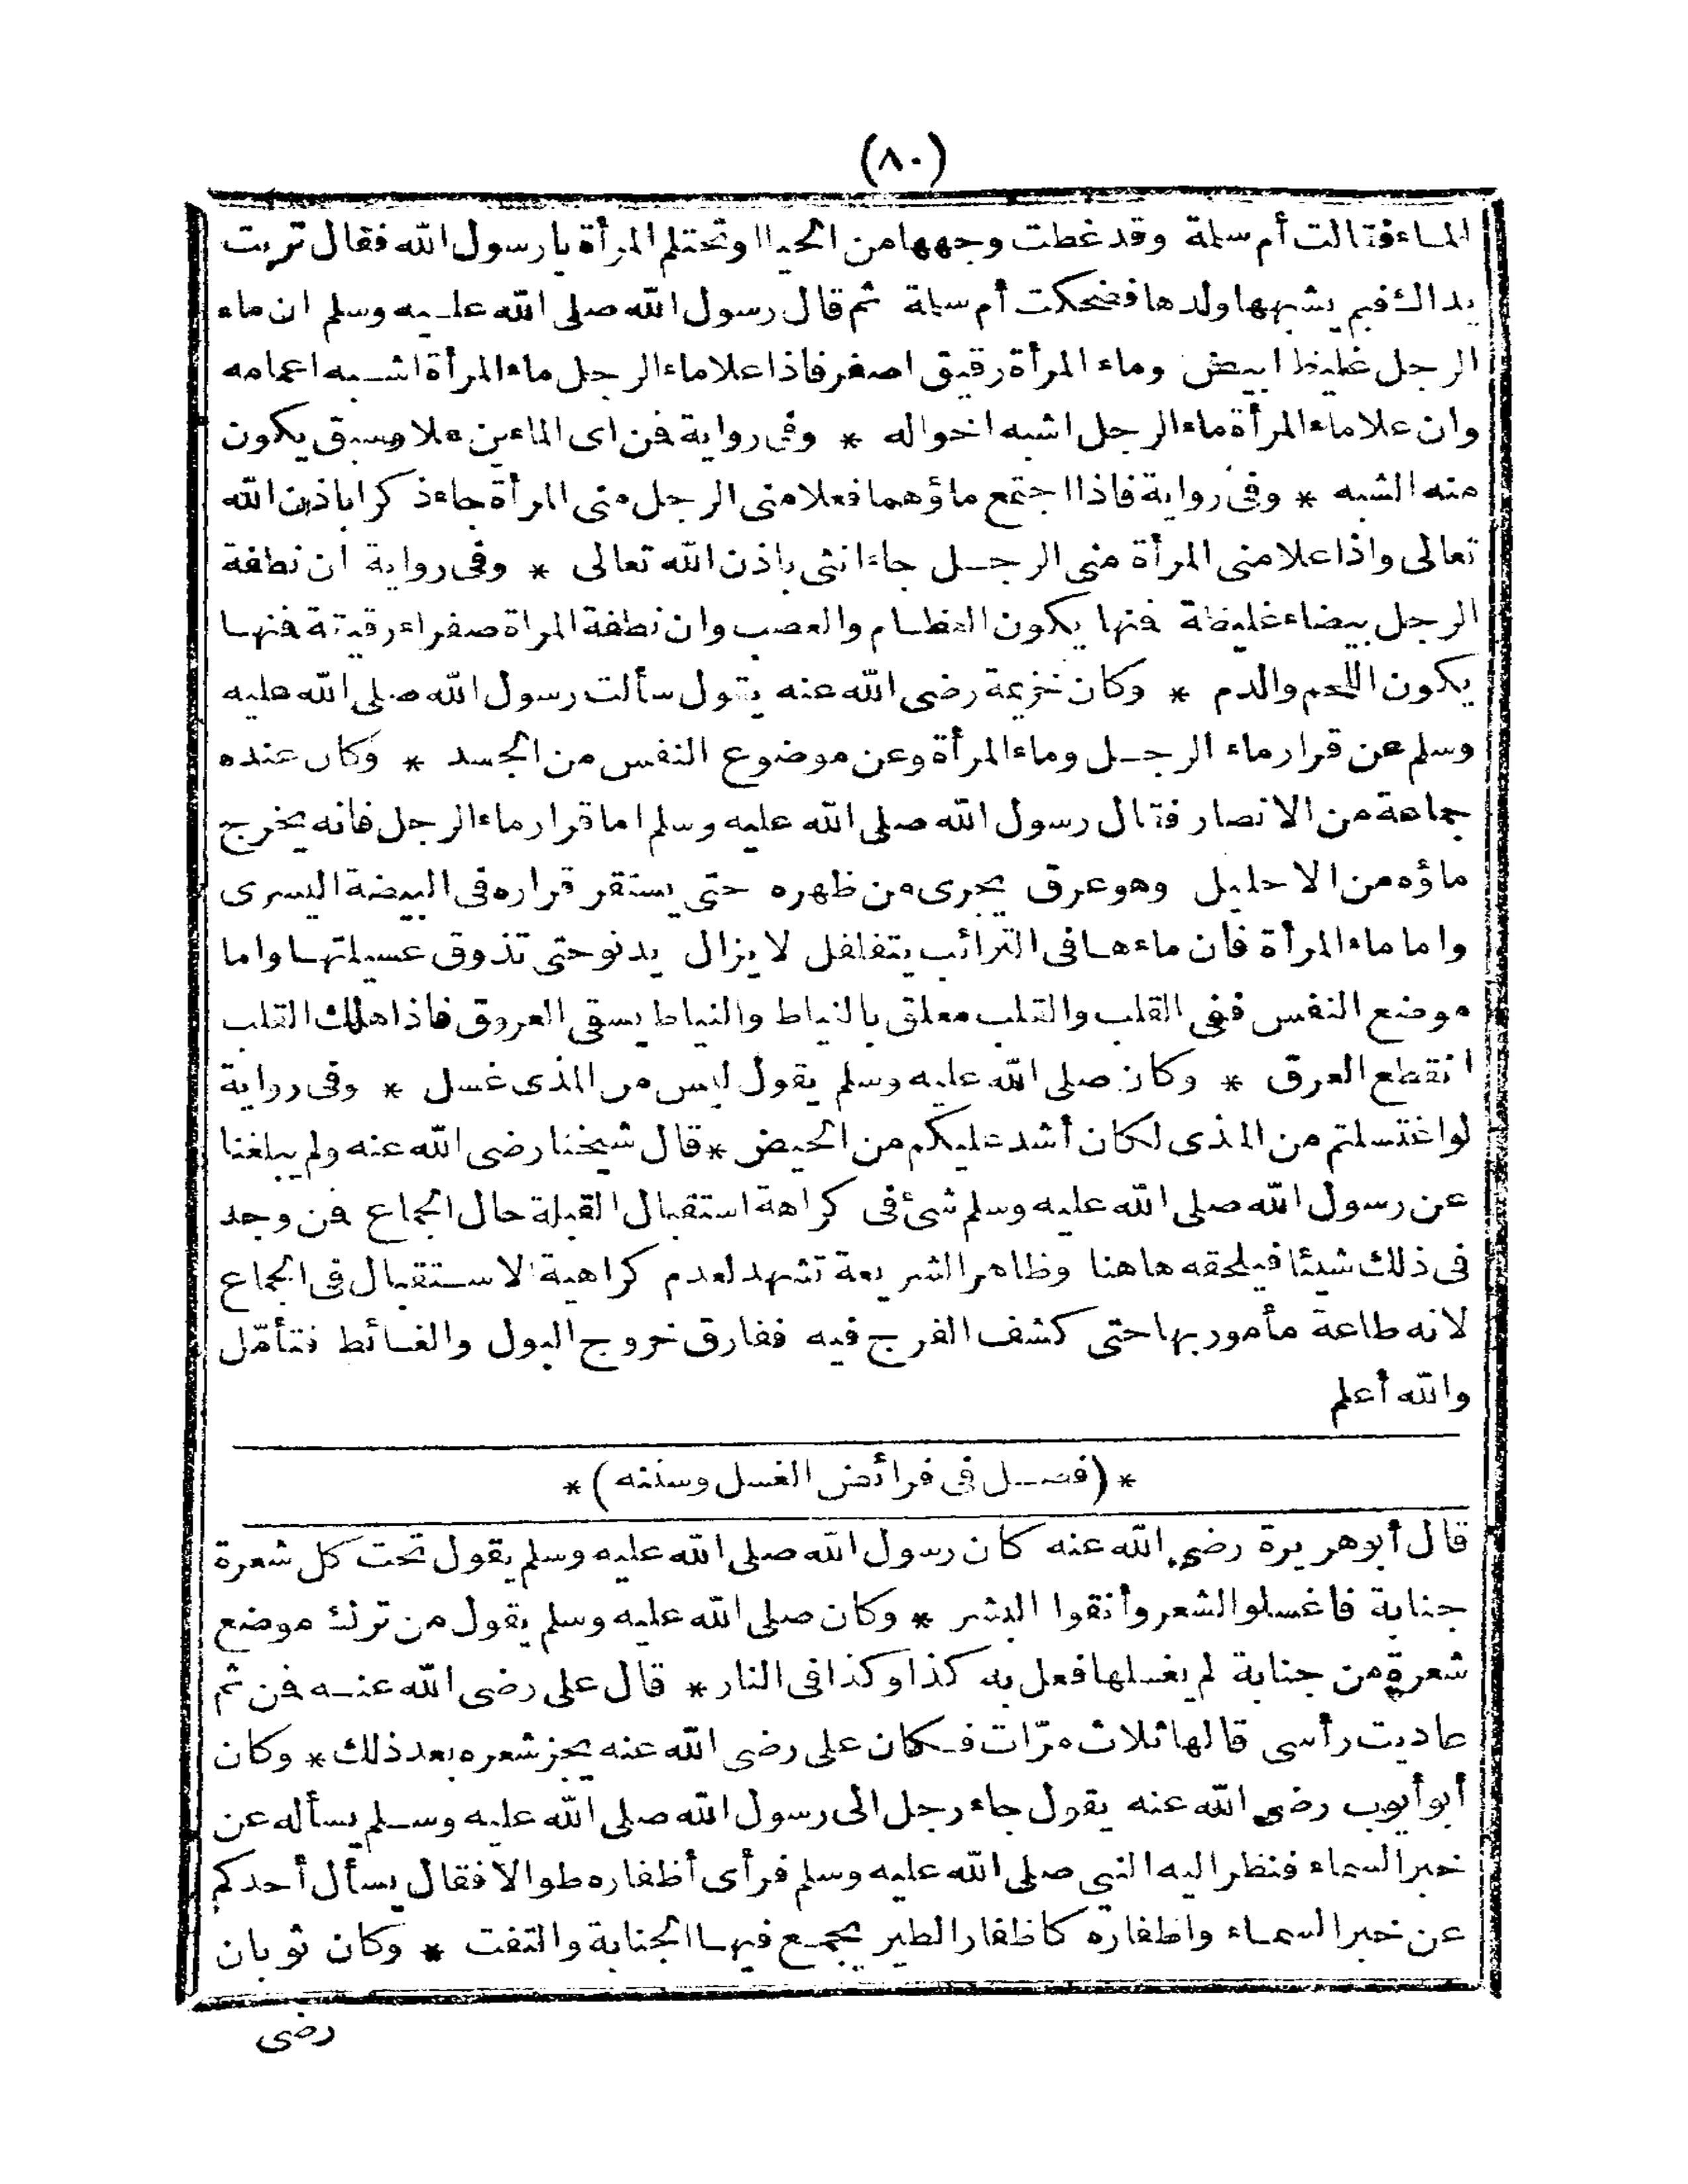 (٨٠)
الماء فقالت أم سلمة وقد غطت وجهها من الحيا اوتحتلم المرأة يا رسول الله فقال تربت
يداك فبم يشبهها ولدها فضحكت أم سلمة ثم قال رسول الله صلى الله عليه وسلم ان ماء
الرجل غليظ ابيض وماء المرأة رقيق اصفر فاذا علا ماء الرجل ماء المرأة اشبه اعمامه
وان علا ماء المرأة ماء الرجل اشبه اخواله * وفى رواية فمن اى الماءين علا وسبق يكون
منه الشبه * وفى رواية فاذا اجتمع ماؤهما فعلا منى الرجل منى المرأة جاء ذكرا باذن الله
تعالى واذا علا منى المرأة منى الرجل جاء انثى باذن الله تعالى * وفى رواية ان نطفة
الرجل بيضاء غليظة فمنها يكون العظام والعصب وان نطفة المراة صفراء رقيقة فمنها
يكون اللحم والدم * وكان خزيمة رضى الله عنه يقول سألت رسول الله صلى الله عليه
وسلم عن قرار ماء الرجل وماء المرأة وعن موضوع النفس من الجسد * وكان عنده
جماعة من الانصار فقال رسول الله صلى الله عليه وسلم اما قرار ماء الرجل فانه يخرج
ماؤه من الاحليل وهو عرق يجرى من ظهره حتى يستقر قراره فى البيضة اليسرى
واما ماء المرأة فان ماءها فى الترائب يتغلغل لا يزال يدنو حتى تذوق عسيلتها واما
موضع النفس ففى القلب والقلب معلق بالنياط والنياط يسقى العروق فاذا هلك القلب
انقطع العرق * وكان صلى الله عليه وسلم يقول ليس من المذى غسل * وفى رواية
لو اغتسلتم من المذى لكان أشد عليكم من الحيض * قال شيخنا رضى الله عنه ولم يبلغنا
عن رسول الله صلى الله عليه وسلم شئ فى كراهة استقبال القبلة حال الجماع فمن وجد
فى ذلك شيئا فيلحقه هاهنا وظاهر الشريعة تشهد لعدم كراهية الاستقبال فى الجماع
لانه طاعة مأمور بها حتى كشف الفرج فيه ففارق خروج البول والغائط فتأمّل
والله أعلم
* (فصل فى فرائض الغسل وسننه) *
قال أبو هريرة رضى الله عنه كان رسول الله صلى الله عليه وسلم يقول تحت كل شعرة
جنابة فاغسلوا الشعر وأنقوا البشر * وكان صلى الله عليه وسلم يقول من ترك موضع
شعرة من جنابة لم يغسلها فعل به كذا وكذا فى النار * قال على رضى الله عنه فمن ثم
عاديت رأسى قالها ثلاث مرّات فكان على رضى الله عنه يجز شعره بعد ذلك * وكان
أبو أيوب رضى الله عنه يقول جاء رجل الى رسول الله صلى الله عليه وسلم يسأله عن
خبر السماء فنظر اليه النبى صلى الله عليه وسلم فرأى أظفاره طوالا فقال يسأل أحدكم
عن خبر السماء واظفاره كاظفار الطير يجمع فيها الجنابة والتفت * وكان ثوبان
رضى